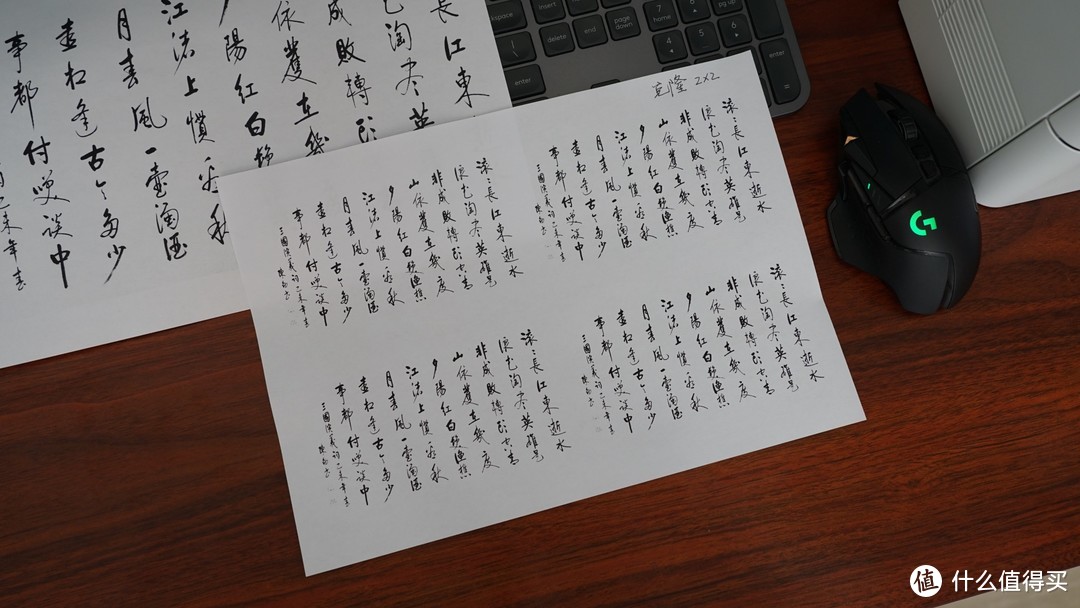 長江東
花淘尽英
成敗轉頭
依舊在幾
夕陽红白
江渚上慣看秋
月春風一壺濁酒
喜相逢古今多少
事都付笑談中
未年春
insert
delete
end
page down
7 home
9 pg up
4
5
enter
enter
克隆 2×2
滚〻長江東逝水
浪花淘尽英雄是
非成敗轉頭空青
山依舊在幾度
夕陽红白髮漁樵
江渚上慣看秋
月春風一壺濁酒
喜相逢古今多少
事都付笑談中
三國演義词乙未年春
滚〻長江東逝水
浪花淘尽英雄是
非成敗轉頭空青
山依舊在幾度
夕陽红白髮漁樵
江渚上慣看秋
月春風一壺濁酒
喜相逢古今多少
事都付笑談中
三國演義词乙未年春
滚〻長江東逝水
浪花淘尽英雄是
非成敗轉頭空青
山依舊在幾度
夕陽红白髮漁樵
江渚上慣看秋
月春風一壺濁酒
喜相逢古今多少
事都付笑談中
三國演義词乙未年春
滚〻長江東逝水
浪花淘尽英雄是
非成敗轉頭空青
山依舊在幾度
夕陽红白髮漁樵
江渚上慣看秋
月春風一壺濁酒
喜相逢古今多少
事都付笑談中
三國演義词乙未年春
值 什么值得买